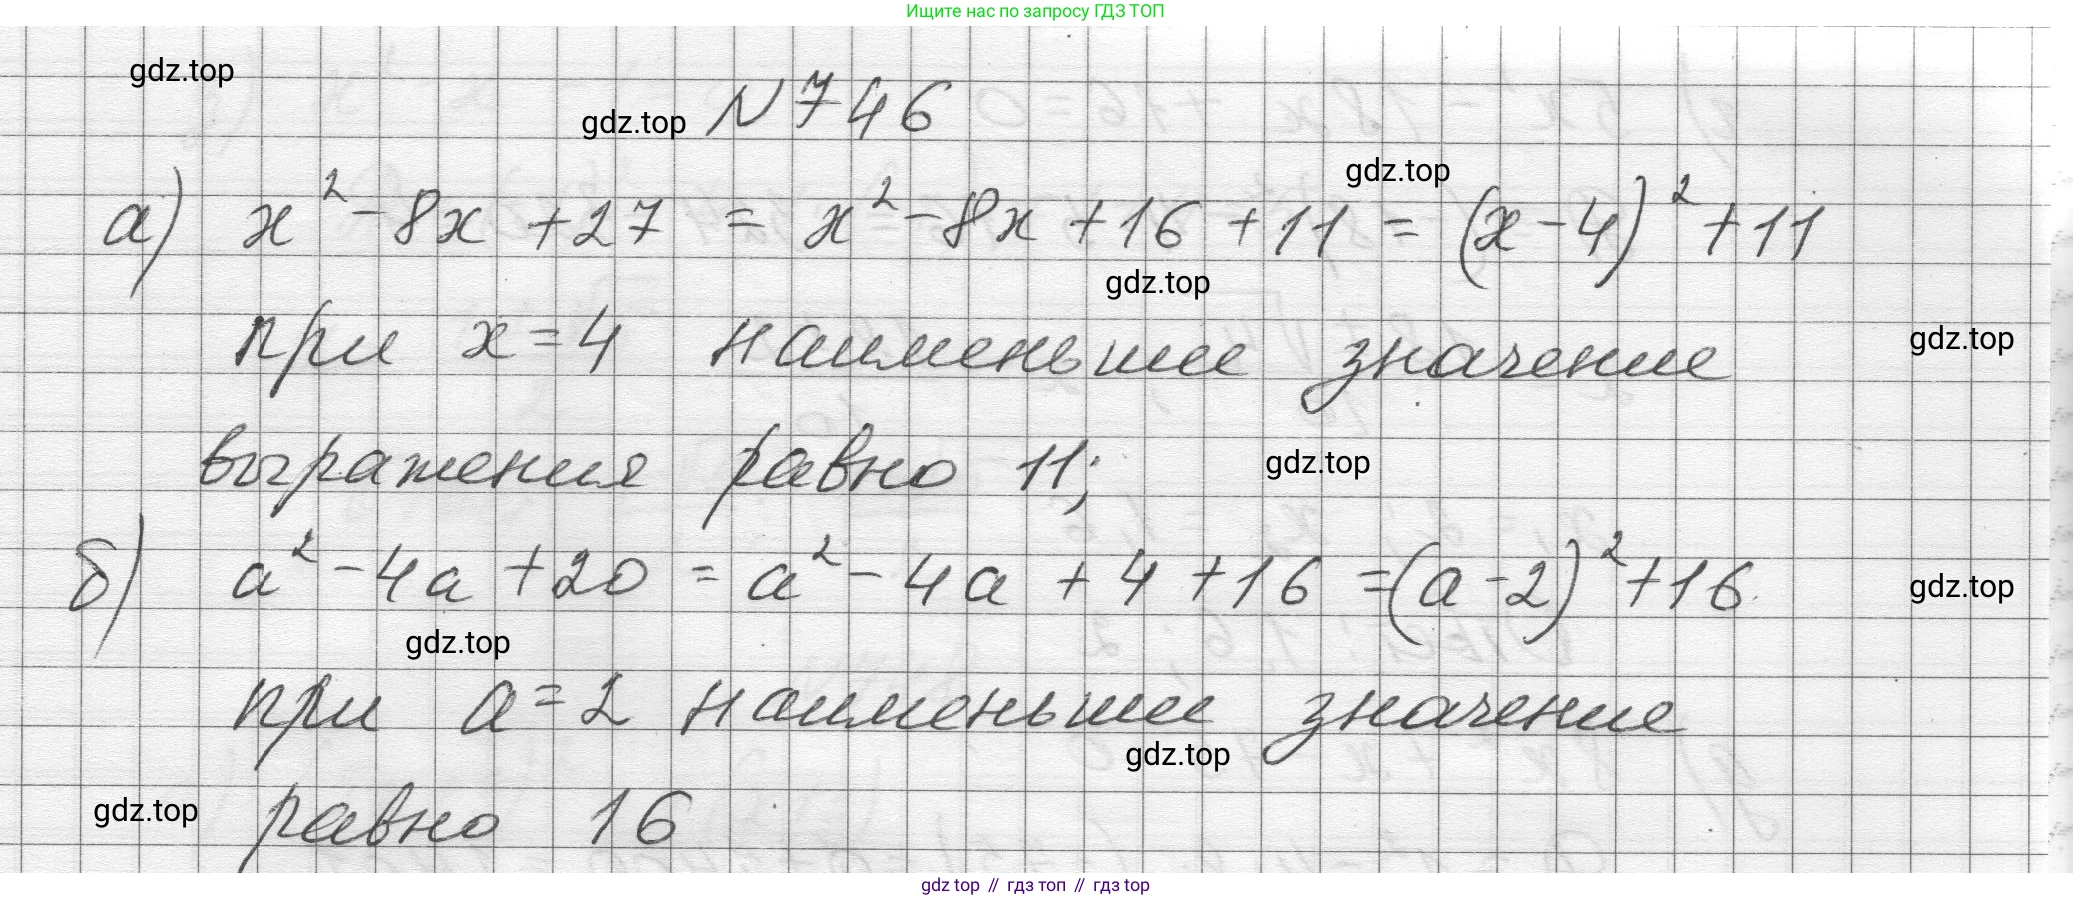 Ищите нас по запросу ГДЗ ТОП
gdz.top
gdz.top N 746
gdz.top
а) x² - 8x + 27 = x² - 8x + 16 + 11 = (x - 4)² + 11
gdz.top
при x = 4 наименьшее значение gdz.top
выражения равно 11; gdz.top
б) a² - 4a + 20 = a² - 4a + 4 + 16 = (a - 2)² + 16 gdz.top
gdz.top
при a = 2 наименьшее значение
gdz.top
gdz.top равно 16
gdz top // гдз топ // гдз top